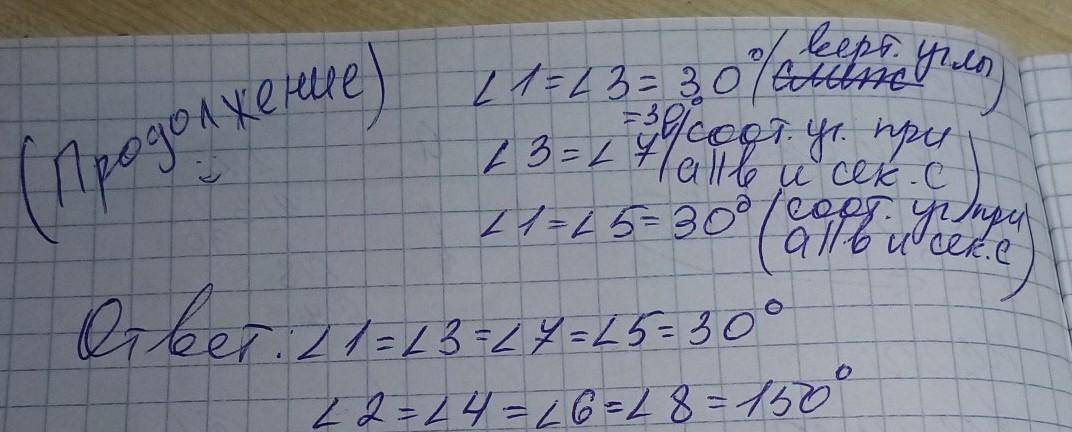 (Продолжение)
∠1=∠3=30°(верт. углы)
∠3=∠7=30°(соот. уг. при
a||b и сек. c)
∠1=∠5=30°(соот. уг. при
a||b и сек. c)
Ответ: ∠1=∠3=∠7=∠5=30°
∠2=∠4=∠6=∠8=150°